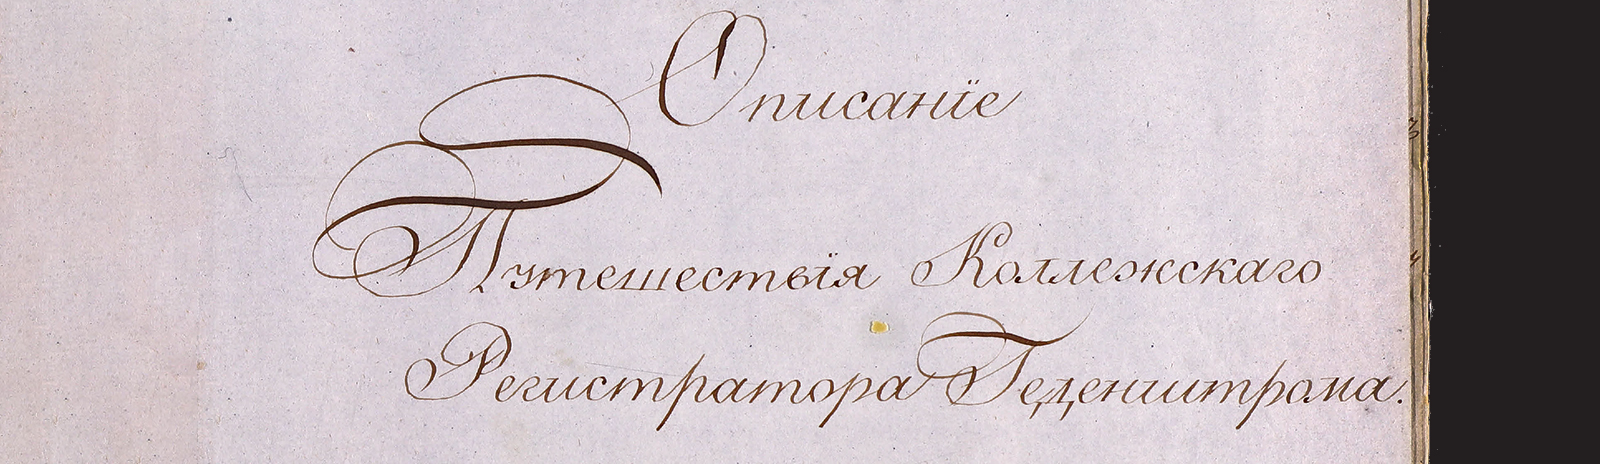 Описанїе
Путешествїя Коллежскаго
Регистратора Геденштрома.